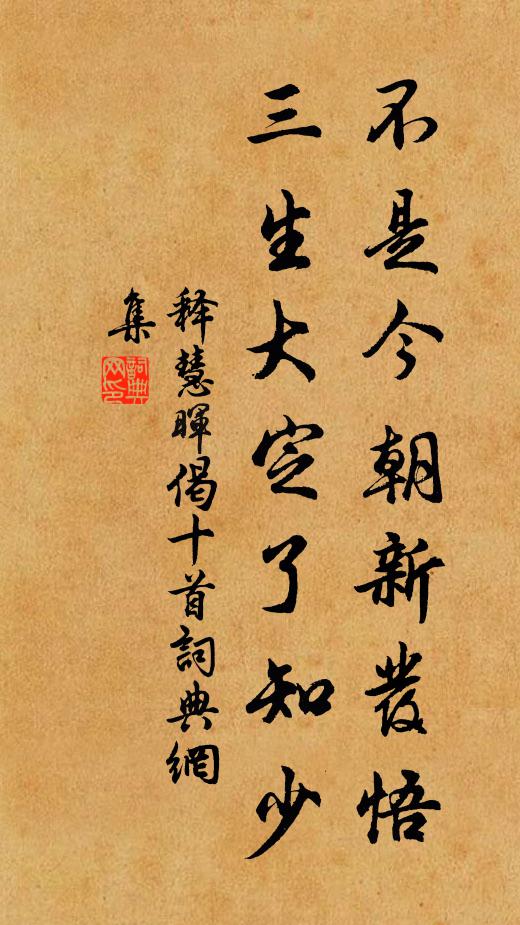 不是今朝新發悟
三生大定了知少
释慧暉偈十首詞典網
集
詞典
网印